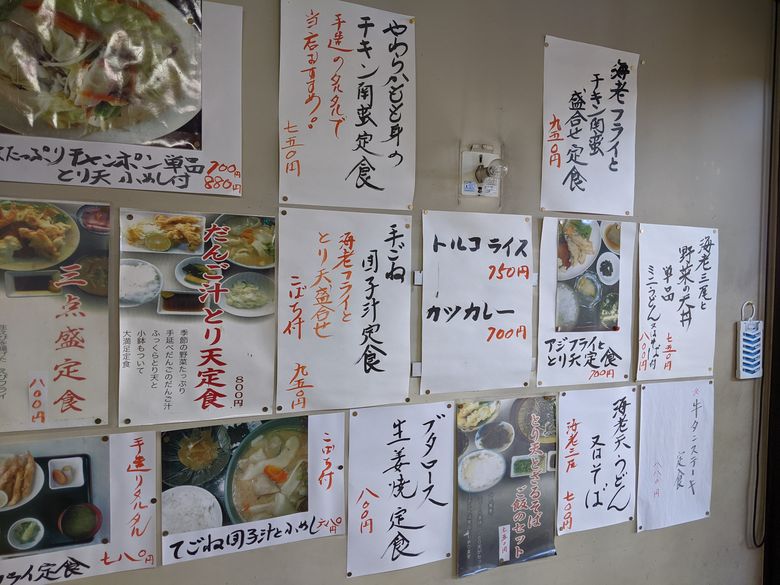 たっぷりチャンポン単品 700円
とり天小めし付 880円
やわらかむね身の
チキン南蛮定食
手造りのタルタルで
当店おすすめ。
七五〇円
海老フライと
チキン南蛮
盛合せ定食
九五〇円
三点盛定食
八〇〇円
だんご汁とり天定食
800円
季節の野菜たっぷり
手延べだんごのだんご汁
ふっくらとり天と
小鉢もついて
大満足定食
手ごね
団子汁定食
海老フライと
とり天盛合せ
こばち付
九五〇円
トルコライス
750円
カツカレー
700円
アジフライと
とり天定食
700円
海老三尾と
野菜の天丼
単品
七五〇円
ミニうどん又はそば付
八〇〇円
手造りタルタル
七八〇円
フライ定食
こばち付
てごね団子汁と小めし
六八〇円
ブタロース
生姜焼定食
八〇〇円
とり天とざるそば
ご飯のセット
七五〇円
海老天うどん
又はそば
海老三尾
七〇〇円
牛タンステーキ
定食